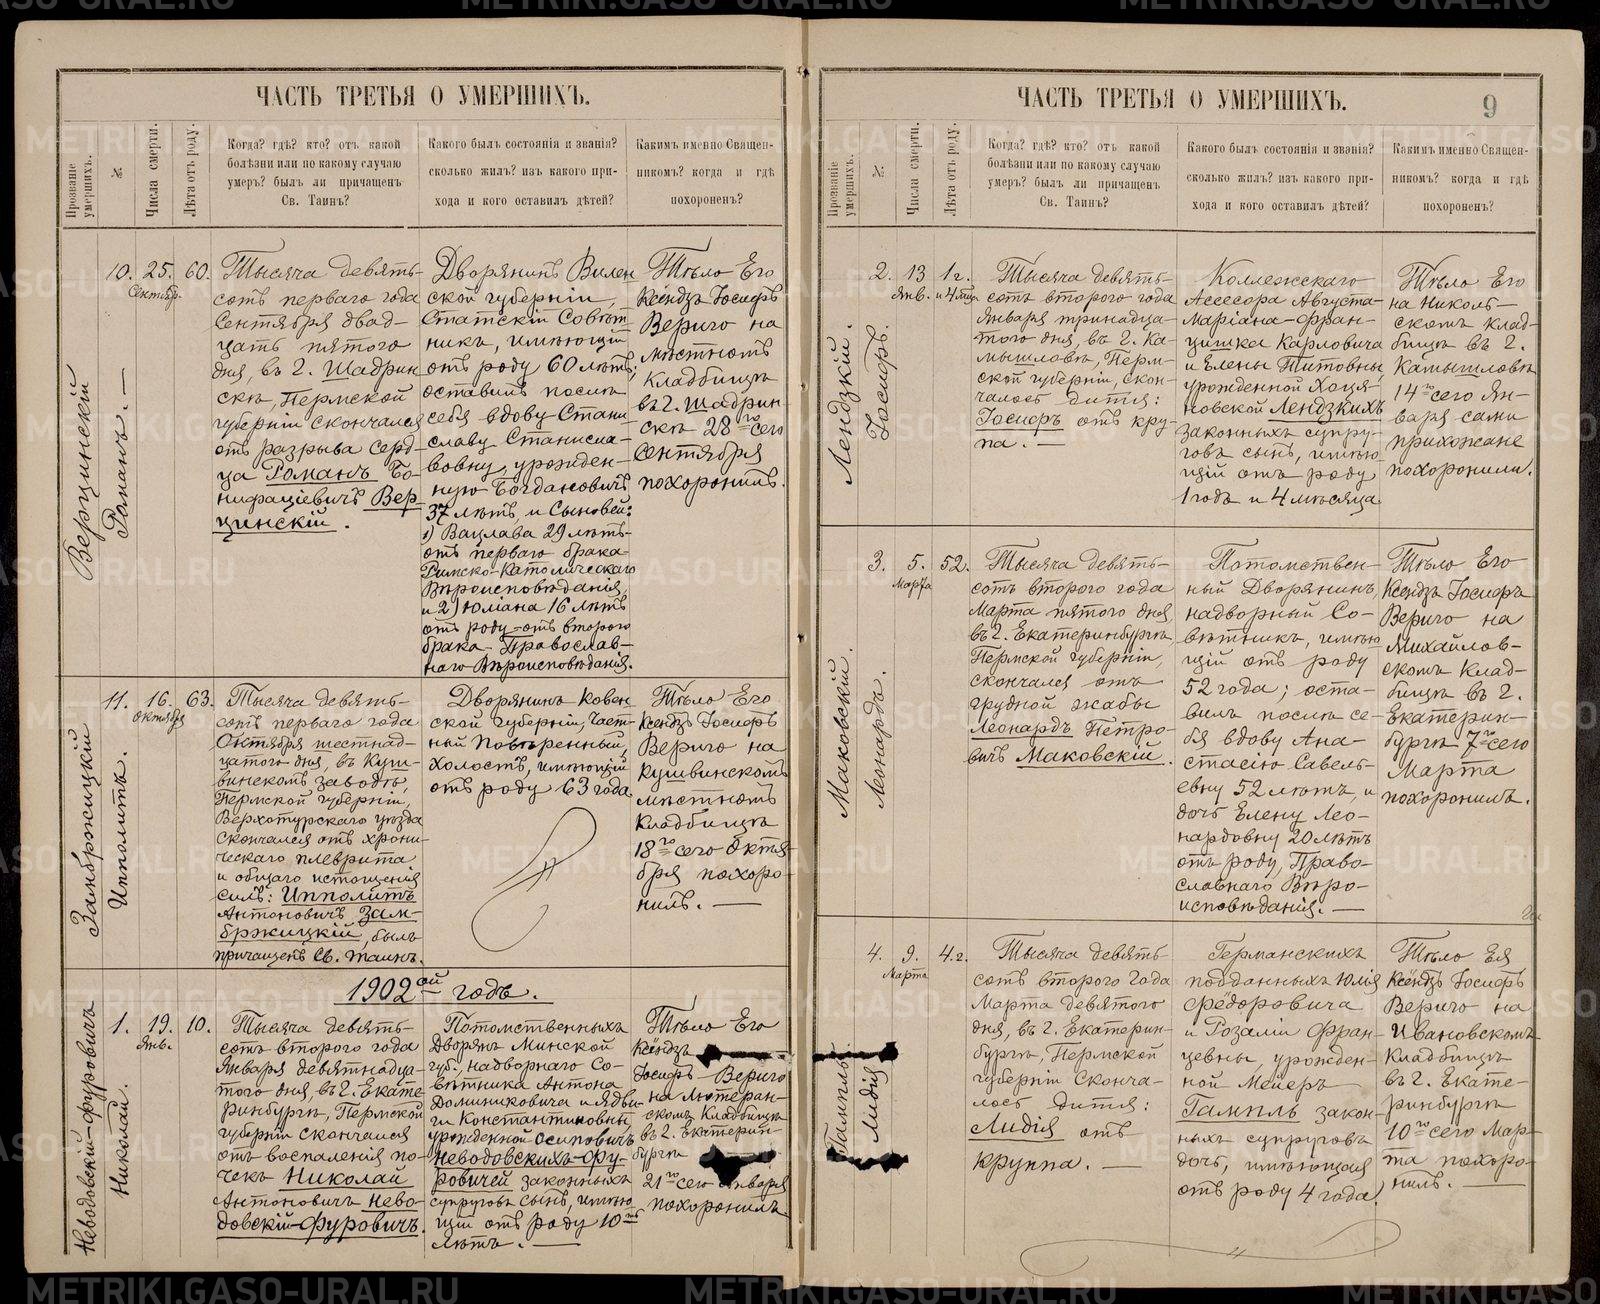 ЧАСТЬ ТРЕТЬЯ О УМЕРШИХЪ.
Прозваніе умершихъ.
№
Числа смерти.
Лѣта отъ роду.
Когда? гдѣ? кто? отъ какой
болѣзни или по какому случаю
умеръ? былъ ли причащенъ
Св. Таинъ?
Какого былъ состоянія и званія?
сколько жилъ? изъ какого при-
хода и кого оставилъ дѣтей?
Какимъ именно Священ-
никомъ? когда и гдѣ
похороненъ?
Верцинскій
Романъ. —
10.
25.
Сентябр.
60.
Тысяча девять-
сотъ перваго года
Сентября двад-
цать пятого
дня, въ г. Шадрин
скѣ, Пермской
губерніи скончался
отъ разрыва серд-
ца Романъ Бо-
нифаціевичъ Вер-
цинскій.
Дворянинъ Вилен
ской губерніи,
Статскій Совѣт
никъ, имѣющій
отъ роду 60 лѣтъ;
оставилъ послѣ
себя вдову Стани
славу Станисла-
вовну, урожден-
ную Богдановичъ
37 лѣтъ, и Сыновей:
1) Вацлава 29 лѣтъ-
отъ перваго брака
Римско-Католическаго
Вѣроисповѣданія,
и 2) Юліана 16 лѣтъ
отъ роду-отъ второго
брака-Православ-
наго Вѣроисповѣданія.
Тѣло Его
Ксёндзъ Іосифъ
Вериго на
мѣстномъ
кладбищѣ
въ г. Шадрин-
скѣ 28го сего
Сентября
похоронилъ.
Замбржицкій
Ипполитъ.
11.
16.
Октября
63.
Тысяча девять-
сотъ перваго года
Октября шестнад-
цатого дня, въ Куш-
винскомъ заводѣ,
Пермской губерніи,
Верхотурскаго уѣзда
скончался отъ хрони-
ческаго плеврита
и общаго истощенія
силъ: Ипполитъ
Антоновичъ Зам-
бржицкій, былъ
причащенъ Св. Таинъ.
Дворянинъ Ковен
ской губерніи, Част-
ный Повѣренный,
холостъ, имѣющій
отъ роду 63 года.
Тѣло Его
Ксёндзъ Іосифъ
Вериго на
Кушвинскомъ
мѣстномъ
кладбищѣ
18го сего Октя-
бря похоро-
нилъ. —
1902ой годъ.
Неводовскій-Фуровичъ
Николай.
1.
19.
Янв.
10.
Тысяча девять-
сотъ второго года
Января девятнадца-
того дня, въ г. Екате-
ринбургѣ, Пермской
губерніи скончался
отъ воспаленія по-
чекъ Николай
Антоновичъ Нево-
довскій-Фуровичъ.
Потомственныхъ
Дворянъ Минской
губ., надворнаго Со-
вѣтника Антона
Доминиковича и Ядви-
ги Константиновны,
урожденной Осиповичъ
Неводовскихъ-Фу-
ровичей законныхъ
супруговъ сынъ, имѣю
щій отъ роду 10ть
лѣтъ. —
Тѣло Его
Ксёндзъ
Іосифъ Вериго
на Лютеран-
скомъ Кладбищѣ
въ г. Екатерин-
бургѣ
21го сего Января
похоронилъ.
ЧАСТЬ ТРЕТЬЯ О УМЕРШИХЪ.
9
Прозваніе умершихъ.
№
Числа смерти.
Лѣта отъ роду.
Когда? гдѣ? кто? отъ какой
болѣзни или по какому случаю
умеръ? былъ ли причащенъ
Св. Таинъ?
Какого былъ состоянія и званія?
сколько жилъ? изъ какого при-
хода и кого оставилъ дѣтей?
Какимъ именно Священ-
никомъ? когда и гдѣ
похороненъ?
Лендзкій.
Іосифъ.
2.
13
Янв.
1 г.
и 4 мѣс.
Тысяча девять-
сотъ второго года
Января тринадца-
того дня, въ г. Ка-
мышловѣ, Перм-
ской губерніи, скон-
чалось дитя:
Іосифъ отъ кру-
па. —
Коллежскаго
Ассесора Августа-
Маріана-Фран-
цишка Карловича
и Елены Титовны
урожденной Хоця-
новской Лендзкихъ
законныхъ супру-
говъ сынъ, имѣю
щій отъ роду
1 годъ и 4 мѣсяца
Тѣло Его
на Николь-
скомъ клад-
бищѣ въ г.
Камышловѣ
14го сего Ян-
варя сами
прихожане
похоронили.
Маковскій.
Леонардъ.
3.
5.
Марта
52.
Тысяча девять-
сотъ второго года
Марта пятого дня,
въ г. Екатеринбургѣ,
Пермской губерніи,
скончался отъ
грудной жабы
Леонардъ Петро-
вичъ Маковскій.
Потомствен-
ный Дворянинъ,
надворный Со-
вѣтникъ, имѣю
щій отъ роду
52 года; оста-
вилъ послѣ се-
бя вдову Ана-
стасію Савель-
евну 52 лѣтъ, и
дочь Елену Лео-
нардовну 20 лѣтъ
отъ роду, Право-
славнаго Вѣро-
исповѣданія. —
Тѣло Его
Ксёндзъ Іосифъ
Вериго на
Михайлов-
скомъ клад-
бищѣ въ г.
Екатерин-
бургѣ 7го сего
Марта
похоронилъ.
Гампль
Лидія
4.
9.
Марта
4 г.
Тысяча девять-
сотъ второго года
Марта девятого
дня, въ г. Екатерин-
бургѣ, Пермской
губерніи Сконча-
лось дитя:
Лидія отъ
круппа. —
Германскихъ
подданныхъ Юлія
Ѳедоровича
и Розаліи Фран-
цевны, урожден-
ной Мейеръ
Гампль закон-
ныхъ супруговъ
дочь, имѣющая
отъ роду 4 года.
Тѣло Ея
Ксёндзъ Іосифъ
Вериго на
Ивановскомъ
кладбищѣ
въ г. Екате-
ринбургѣ
10го сего Мар-
та похоро-
нилъ. —
METRIKI.GASO-URAL.RU